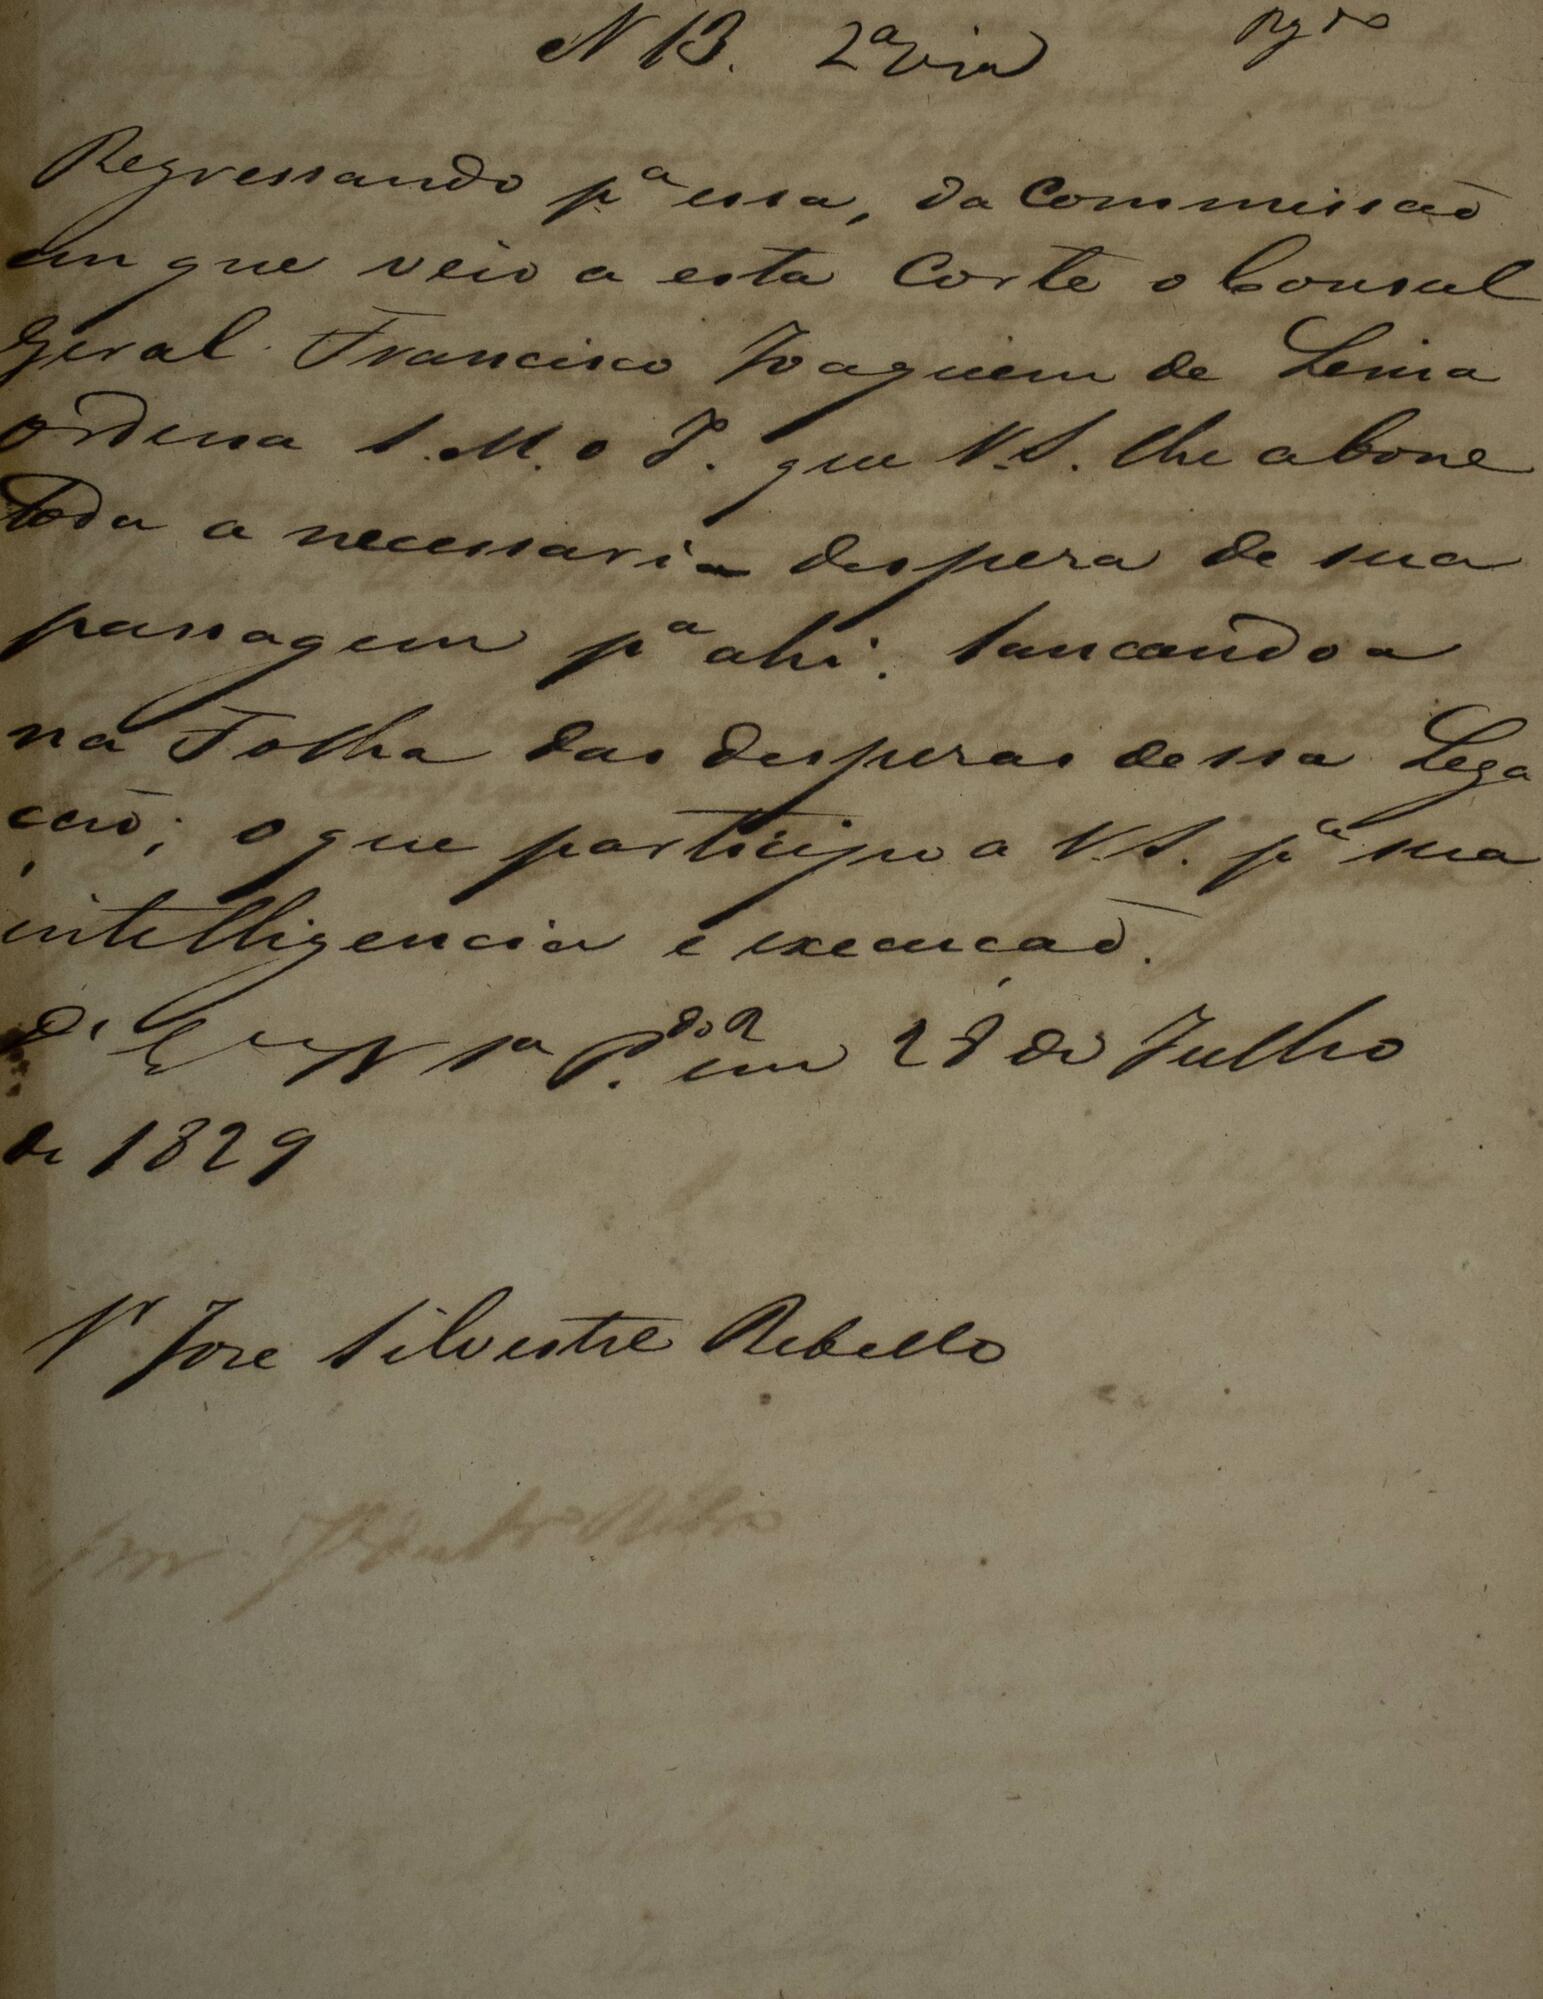 N 13. 2ª via Rgdo
Regressando pª essa, da Commissão
em que veio a esta Corte o Consul
Geral Francisco Joaquim de Lima
ordena S. M. o I. que V. S. lhe abone
toda a necessaria despeza de sua
passagem pª ahi. lancando a
na Folha das despezas dessa Lega
ção; o que participo a V. S. pª sua
intelligencia e execução.
Ds Gue a V Sª P. em 28 de Julho
de 1829
Sr Jose Silvestre Rebello